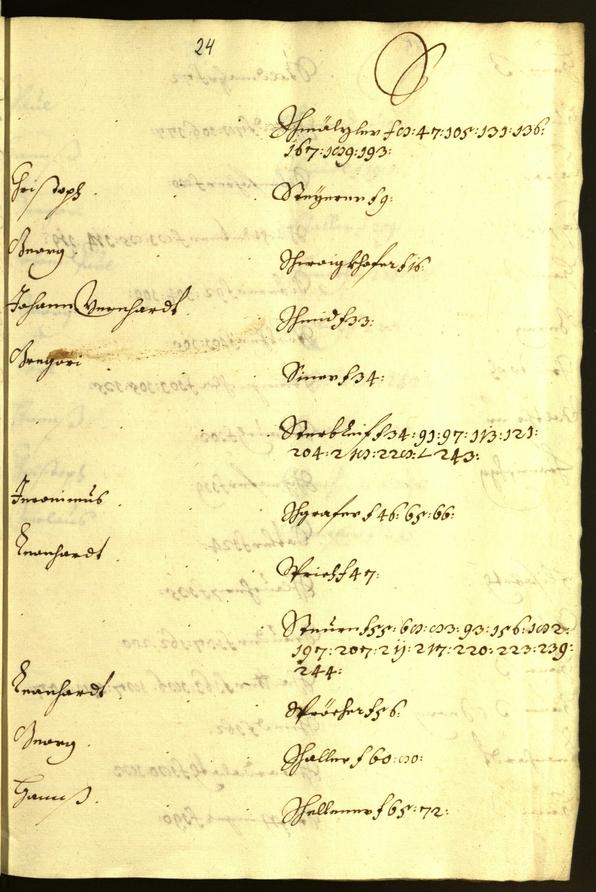 24
S
Schmälzler f 8: 47: 105: 131: 136:
167: 189: 193:
Christoph . . Steÿerer f 9:
Georg . . Schwaigkhofer f 16:
Johann Bernhardt . Schmid f 33:
Gregori . . Siner f 34:
Sterbkhif f 34: 91: 97: 113: 121:
204: 218: 228: 243:
Jeronimus . . Schgraffer f 46: 65: 66:
Leonhardt . . Spries f 47:
Steurer f 55: 68: 83: 93: 156: 182:
197: 207: 211: 217: 220: 223: 239:
244:
Leonhardt . . Spröcher f 56:
Georg . . Schaller f 60: 80:
Hannß . . Schellener f 65: 72: